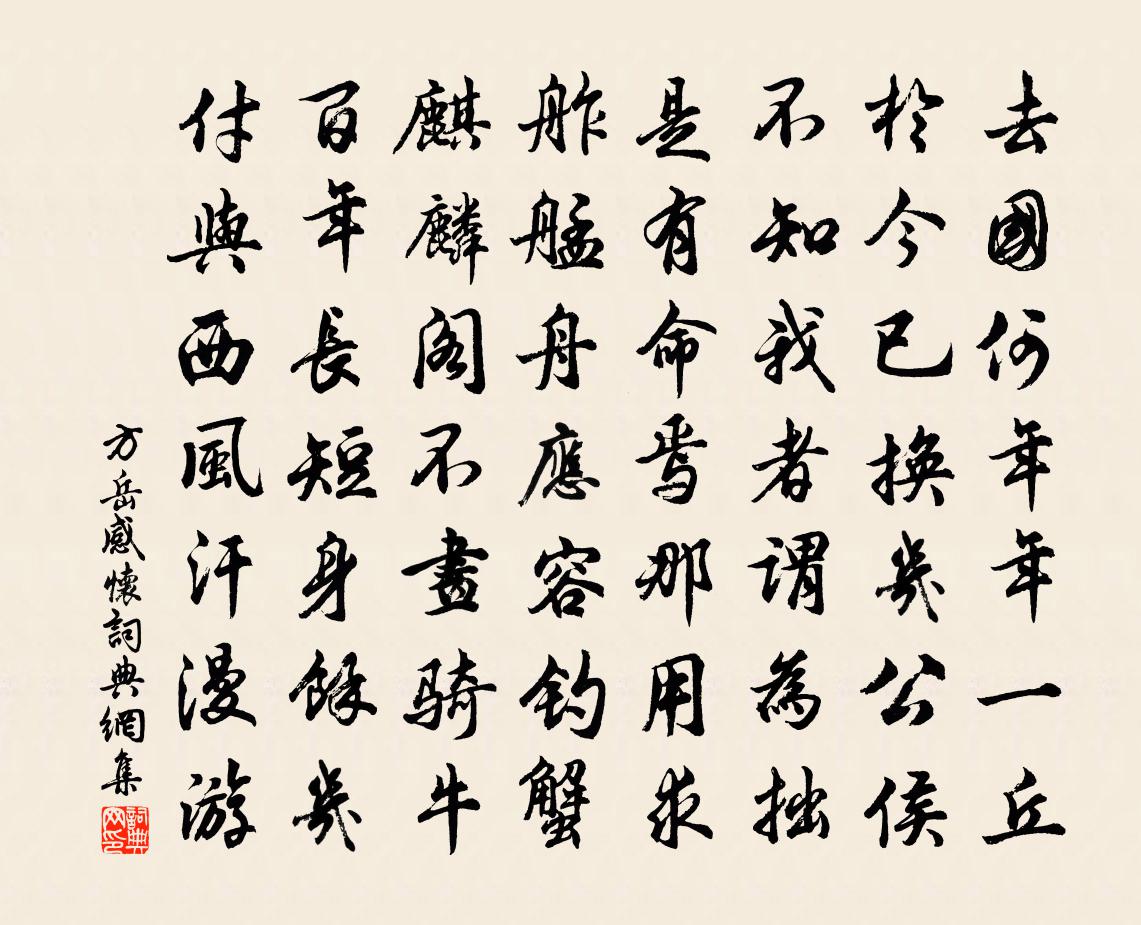 去國何年年一丘
於今已換幾公侯
不知我者謂為拙
是有命焉那用求
舴艋舟應容釣蟹
麒麟閣不畫騎牛
百年長短身餘幾
付與西風汗漫游
方岳感懷詞典網集
詞典網印